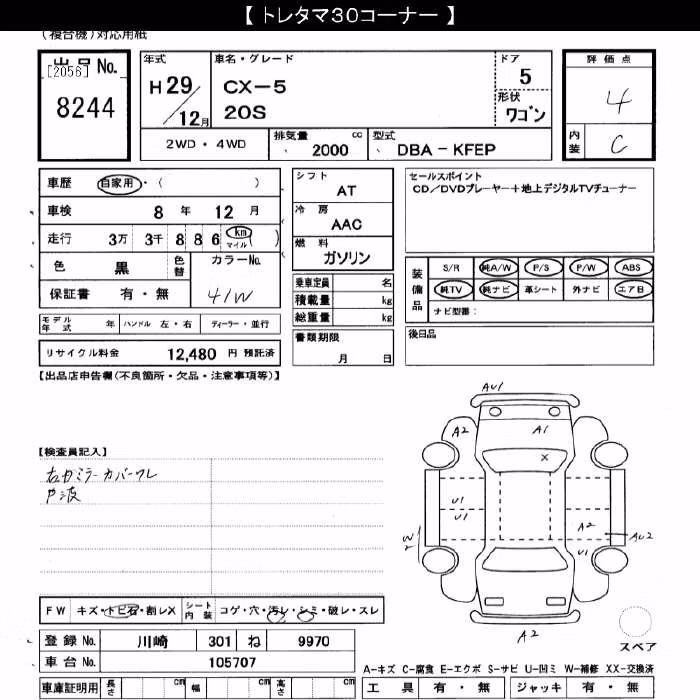 【 トレタマ30コーナー 】
(複合機)対応用紙
出品No.
[2056]
8244
年式
H29/12月
車名・グレード
CX-5
20S
ドア
5
形状
ワゴン
2WD・4WD
排気量 2000 cc
型式 DBA-KFEP
評価点
4
内装
C
車歴 自家用・( )
車検 8年 12月
走行 3万 3千 8 8 6 km マイル ( )
色 黒 色替 カラーNo.
41W
保証書 有・無
モデル年式 年 ハンドル 左・右 ディーラー・並行
リサイクル料金 12,480 円 預託済
シフト
AT
冷房
AAC
燃料
ガソリン
乗車定員 名
積載量 kg
総重量 kg
書類期限
月 日
セールスポイント
CD/DVDプレーヤー+地上デジタルTVチューナー
装備品
S/R 純A/W P/S P/W ABS
純TV 純ナビ 革シート 外ナビ エアB
ナビ型番:
後日品
【出品店申告欄(不良箇所・欠品・注意事項等)】
【検査員記入】
右カミラーカバーワレ
AU1
A2
A1
X
U1
U1
A2
AU2
U1
W2
A2
スペア
FW キズ・トビ石・割レX シート内装 コゲ・穴・汚レ・シミ・破レ・スレ
登録No. 川崎 301 ね 9970
車台No. 105707
車庫証明用 長さ cm 幅 cm 高さ cm
A-キズ C-腐食 E-エクボ S-サビ U-凹ミ W-補修 XX-交換済
工具 有・無 ジャッキ 有・無